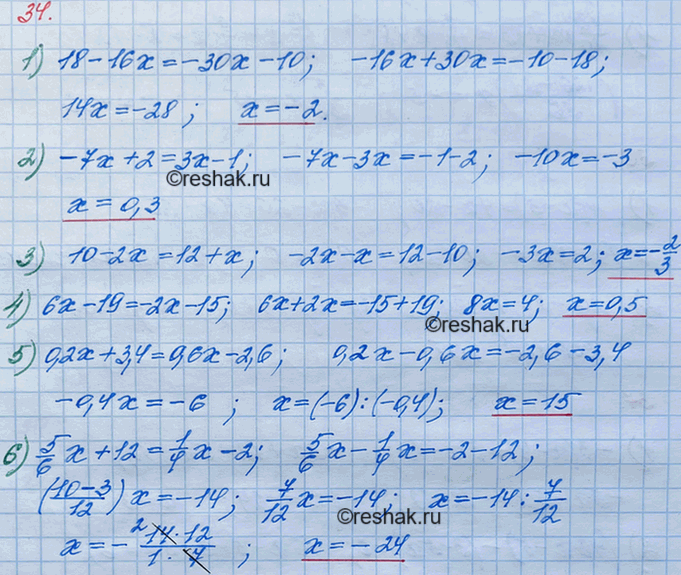 34.
1) 18-16x=-30x-10; -16x+30x=-10-18;
14x=-28; x=-2.
2) -7x+2=3x-1; -7x-3x=-1-2; -10x=-3
©reshak.ru
x=0,3
3) 10-2x=12+x; -2x-x=12-10; -3x=2; x=-2/3
4) 6x-19=-2x-15; 6x+2x=-15+19; 8x=4; x=0,5
©reshak.ru
5) 0,2x+3,4=0,6x-2,6; 0,2x-0,6x=-2,6-3,4
-0,4x=-6; x=(-6):(-0,4); x=15
6) 5/6 x+12=1/4 x-2; 5/6 x-1/4 x=-2-12;
((10-3)/12) x=-14; 7/12 x=-14; x=-14:7/12
©reshak.ru
x=-(2 14·12)/(1·7); x=-24